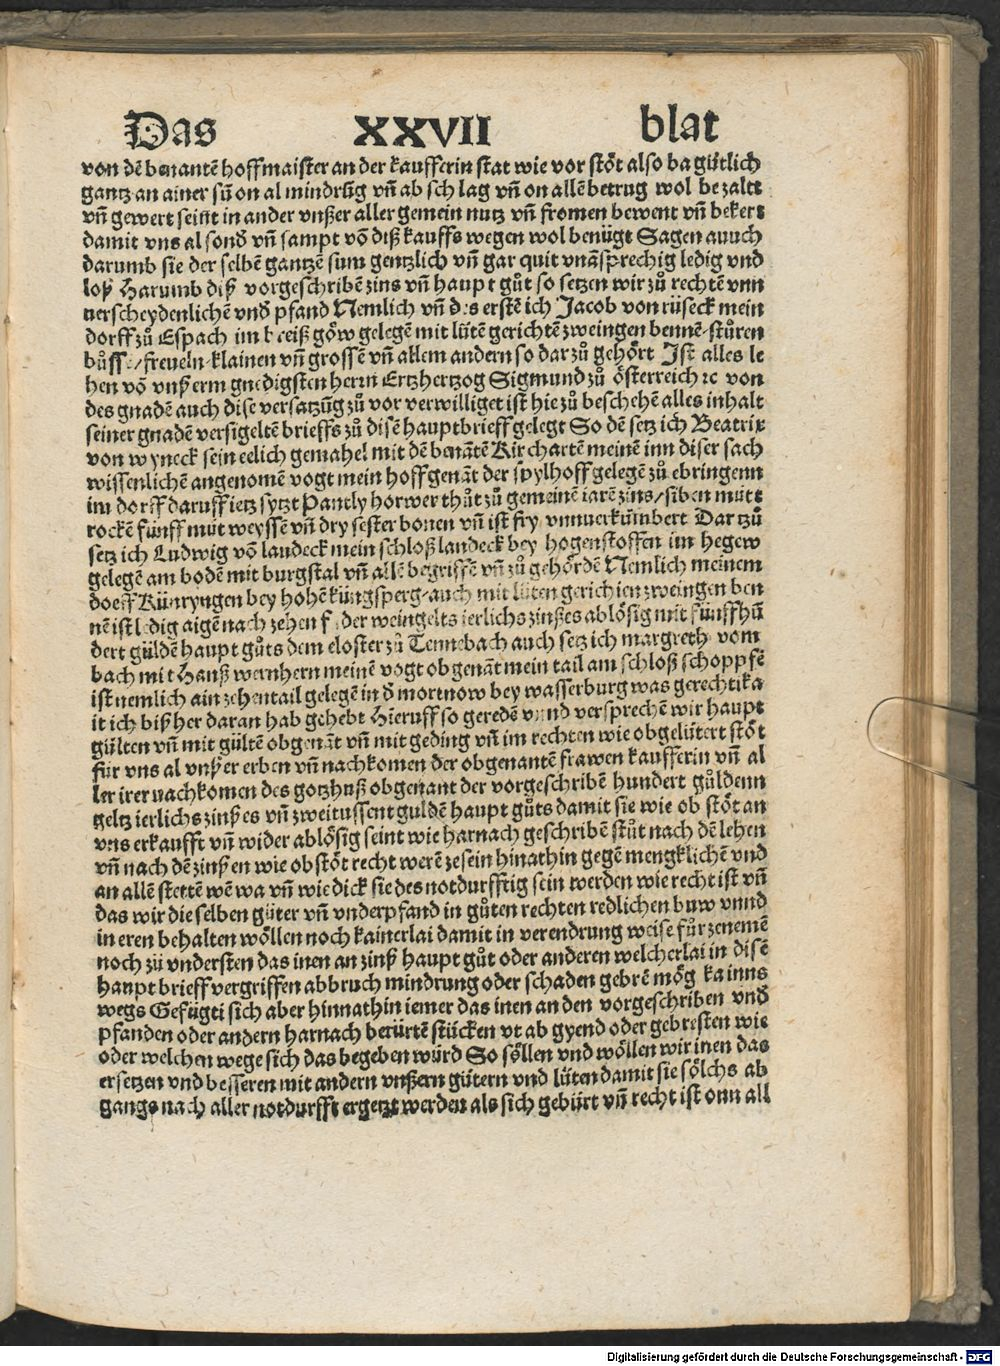 Das XXVII blat
von dē benantē hoffmaister an der kaufferin stat wie vor stöt also ba gůtlich
gantz an ainer sū on al mindrūg vñ ab schlag vñ on allē betrug wol bezaltt
vñ gewert seint in ander vnßer aller gemein nutz vñ fromen bewent vñ bekert
damit vns al sond vñ sampt vō diß kauffs wegen wol benügt Sagen auuch
darumb sie der selbē gantzē sum gentzlich vñ gar quit vnāsprechig ledig vnd
loß Harumb diß vorgeschribē zins vñ haupt gůt so setzen wir zů rechtē vnn
uerscheydenlichē vnd pfand Nemlich vñ des erstē ich Jacob von rüseck mein
dorff zů Espach im breißgöw gelegē mit lütē gerichtē zweingen bennē stůren
bůsse/freueln klainen vñ grossē vñ allem andern so dar zů gehört Jst alles le
hen vō vnßerm gnedigsten herrn Ertzhertzog Sigmund zů österreich ꝛc von
des gnadē auch dise versatzūg zů vor verwilliget ist hie zů beschehē alles inhalt
seiner gnadē versigeltē brieffs zů disē hauptbrieff gelegt So dē setz ich Beatrix
von wyneck sein eelich gemahel mit dē benātē Kirchartē meinē inn diser sach
wissenlichē angenomē vogt mein hoff genāt der spylhoff gelegē zů ebringenn
im dorff daruff ietz sytzt Pantly horwer thůt zů gemeinē iarē zins/siben mutt
rockē fünff mut weyssē vñ dry sester bonen vñ ist fry vnnuerkūmbert Dar tzů
setz ich Ludwig vō landeck mein schloß landeck bey hogenstoffen im hegew
gelegē am bodē mit burgstal vñ allē begriffē vñ zů gehördē Nemlich meinem
doeff Künryngen bey hohē küngsperg auch mit lüten gerichten zweingen ben
nē ist ledig aigē nach zehen der weingelts ierlichs zinßes ablösig mit fünffhū
dert güldē haupt gůts dem closter zů Tennebach auch setz ich margreth vom
bach mit Hanß wernhern meinē vogt ob genāt mein tail am schloß schoppfē
ist nemlich ain zehentail gelegē in d mortnow bey wasserburg was gerechtika
it ich biß her daran hab gehebt Hieruff so geredē vnnd versprechē wir haupt
gülten vñ mit gültē obgenāt vñ mit geding vñ im rechten wie obgelütert stöt
für vns al vnßer erben vñ nachkomen der obgenantē frawen kaufferin vñ al
ler irer nachkomen des gotzhuß obgenant der vorgeschribē hundert güldenn
geltz ierlichs zinßes vñ zweitussent guldē haupt gůts damit sie wie ob stöt an
vns erkaufft vñ wider ablösig seint wie harnach geschribē stůt nach dē lehen
vñ nach dē zinßen wie ob stöt recht werē ze sein hinathin gegē mengklichē vnd
an allē stettē wē wa vñ wie dick sie des notdurfftig sein werden wie recht ist vñ
das wir die selben güter vñ vnderpfand in gůten rechten redlichen buw vnnd
in eren behalten wöllen noch kainerlai damit in verendrung weise für zenemē
noch zü vndersten das inen an zinß haupt gůt oder anderen welcherlai in disē
haupt brieff vergriffen abbruch mindrung oder schaden gebrē mög ka inns
wegs Gefügti sich aber hinnathin iemer das inen an den vorgeschriben vnd
pfanden oder andern harnach berürtē stücken vt ab gyend oder gebresten wie
oder welchen wege sich das begeben würd So söllen vnd wöllen wir inen das
ersetzen vnd besseren mit andern vnßern gütern vnd lüten damit sie sölchs ab
gangs nach aller notdurfft ergetzt werden als sich gebürt vñ recht ist onn all
Digitalisierung gefördert durch die Deutsche Forschungsgemeinschaft - DFG